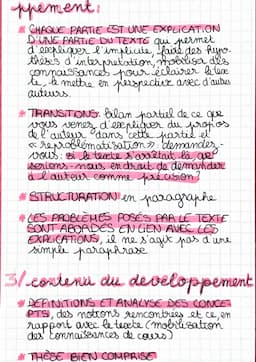 ppement:
* CHAQUE PARTIE EST UNE EXPLICATION
D'UNE PARTIE DU TEXTE qui permet
d'expliquer l'implicite, faire des hypo-
thèses d'interprétation, mobiliser des
connaissances pour éclairer le tex
te, le mettre en perspective avec d'autres
auteurs.
* TRANSITIONS: bilan partiel de ce que
vous venez d'expliquer du propos
de l'auteur dans cette partie et
« reproblématisation » demandez-
vous: si le texte s'arrêtait là, que
serions-nous en droit de demander
à l'auteur comme précision
* STRUCTURATION en paragraphe
* LES PROBLÈMES POSÉS PAR LE TEXTE
SONT ABORDÉS EN LIEN AVEC LES
EXPLICATIONS, il ne s'agit pas d'une
simple paraphrase
3/. contenu du developpement
* DEFINITIONS ET ANALYSE DES CONCE-
PTS, des notions rencontrées et ce, en
rapport avec le texte (mobilisation
des connaissances de cours)
* THÈSE BIEN COMPRISE